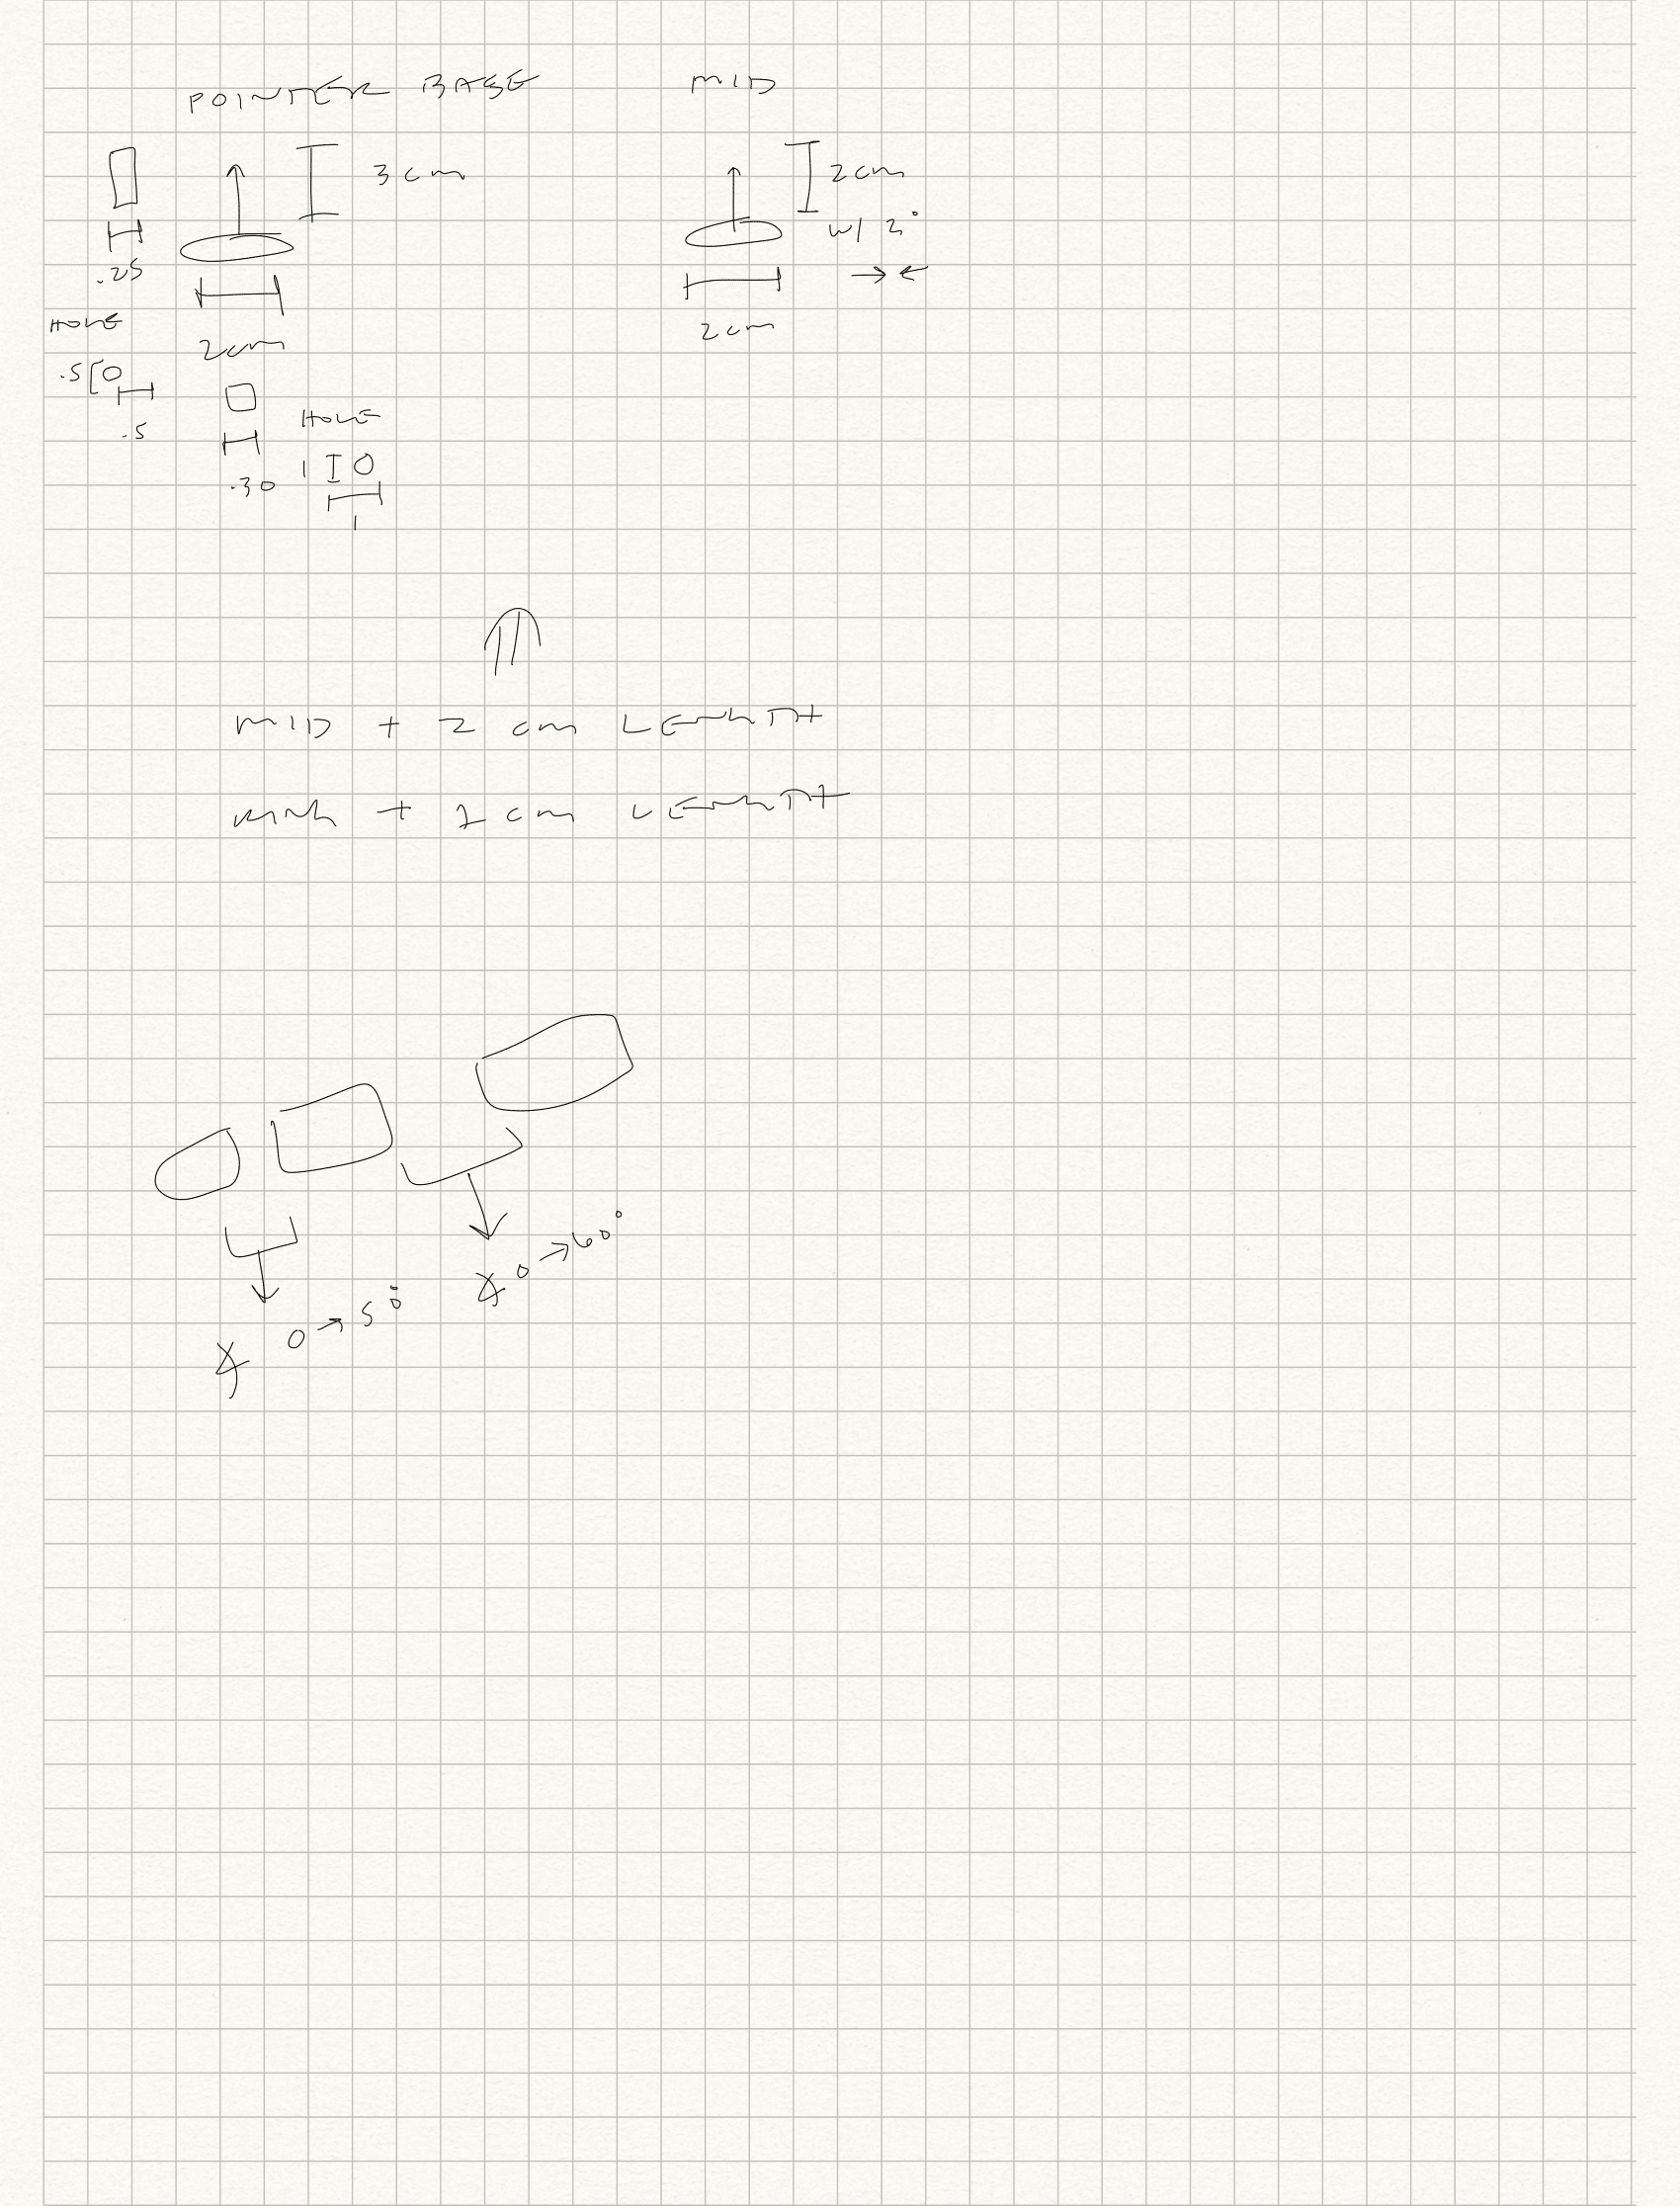 POINTER BASE
MID
3 cm
2 cm
w/ 2°
.25
HOLE
2 cm
2 cm
.5
.5
HOLE
1
.30
1
MID + 2 cm LENGTH
+ 1 cm LENGTH
0 → 60°
0 → 50°